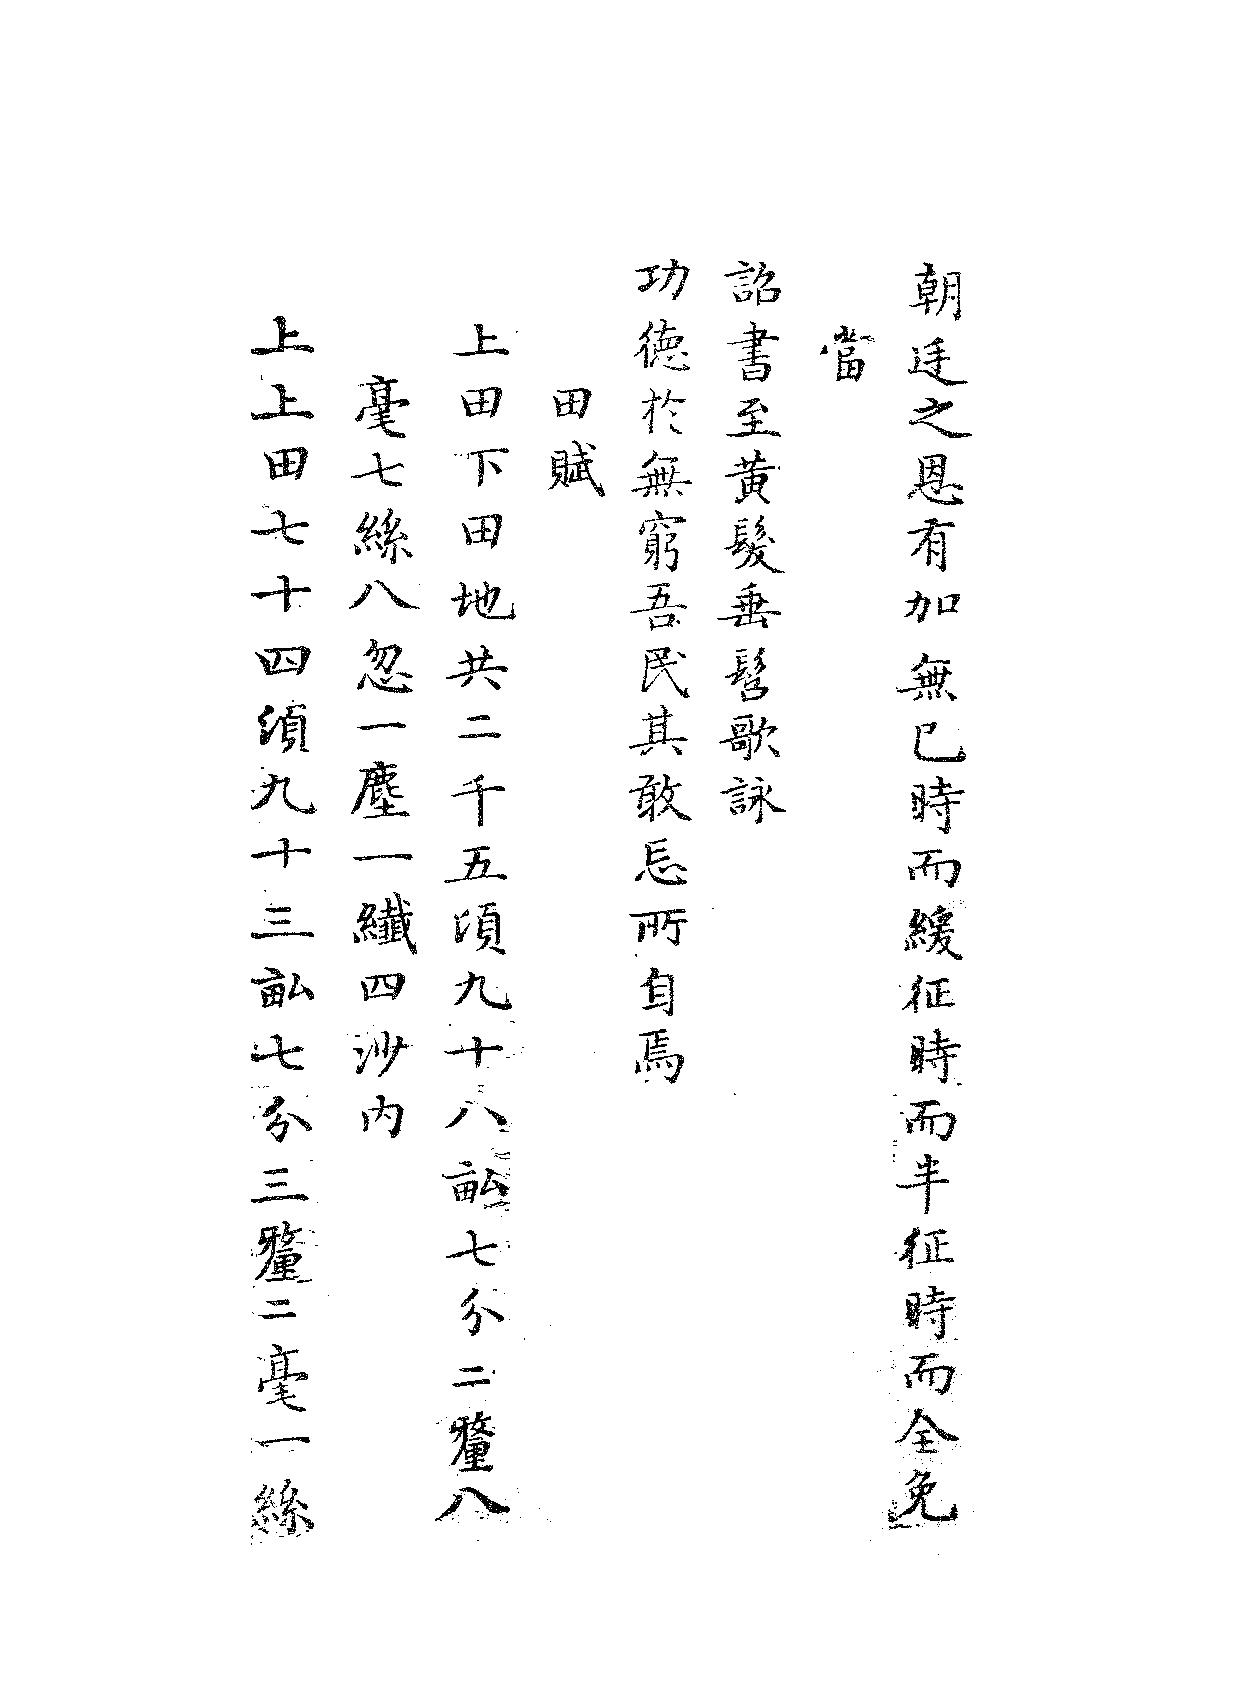 朝廷之恩有加無已時而緩征時而半征時而全免
當
詔書至黄髮垂髫歌詠
功德於無窮吾民其敢忘所自焉
田賦
上田下田地共二千五頃九十八畝七分二釐八
毫七絲八忽一塵一纖四沙内
上上田七十四頃九十三畝七分三釐二毫一絲